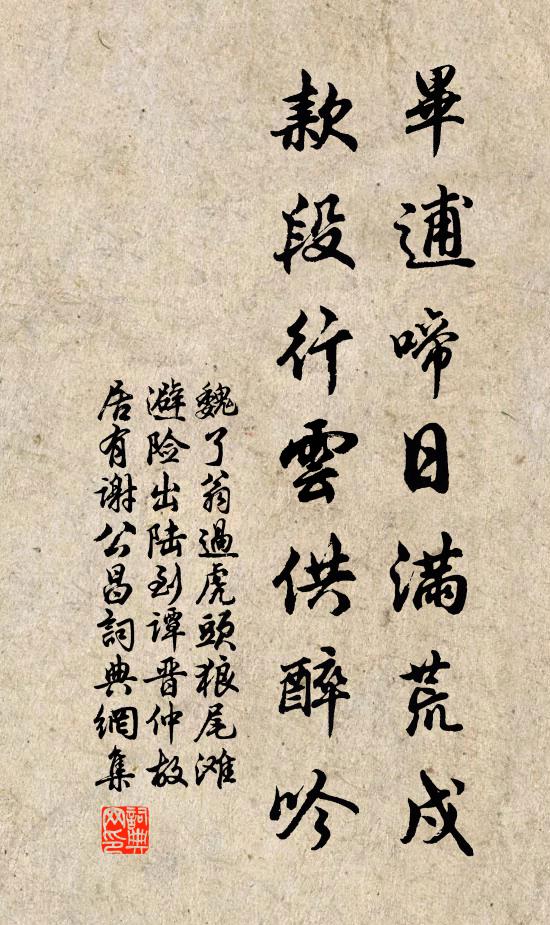 畢逋啼日滿荒戍
款段行雲供醉吟
魏了翁過虎頭狼尾滩
避险出陆到谭晋仲故
居有谢公昌詞典網集
詞典网印